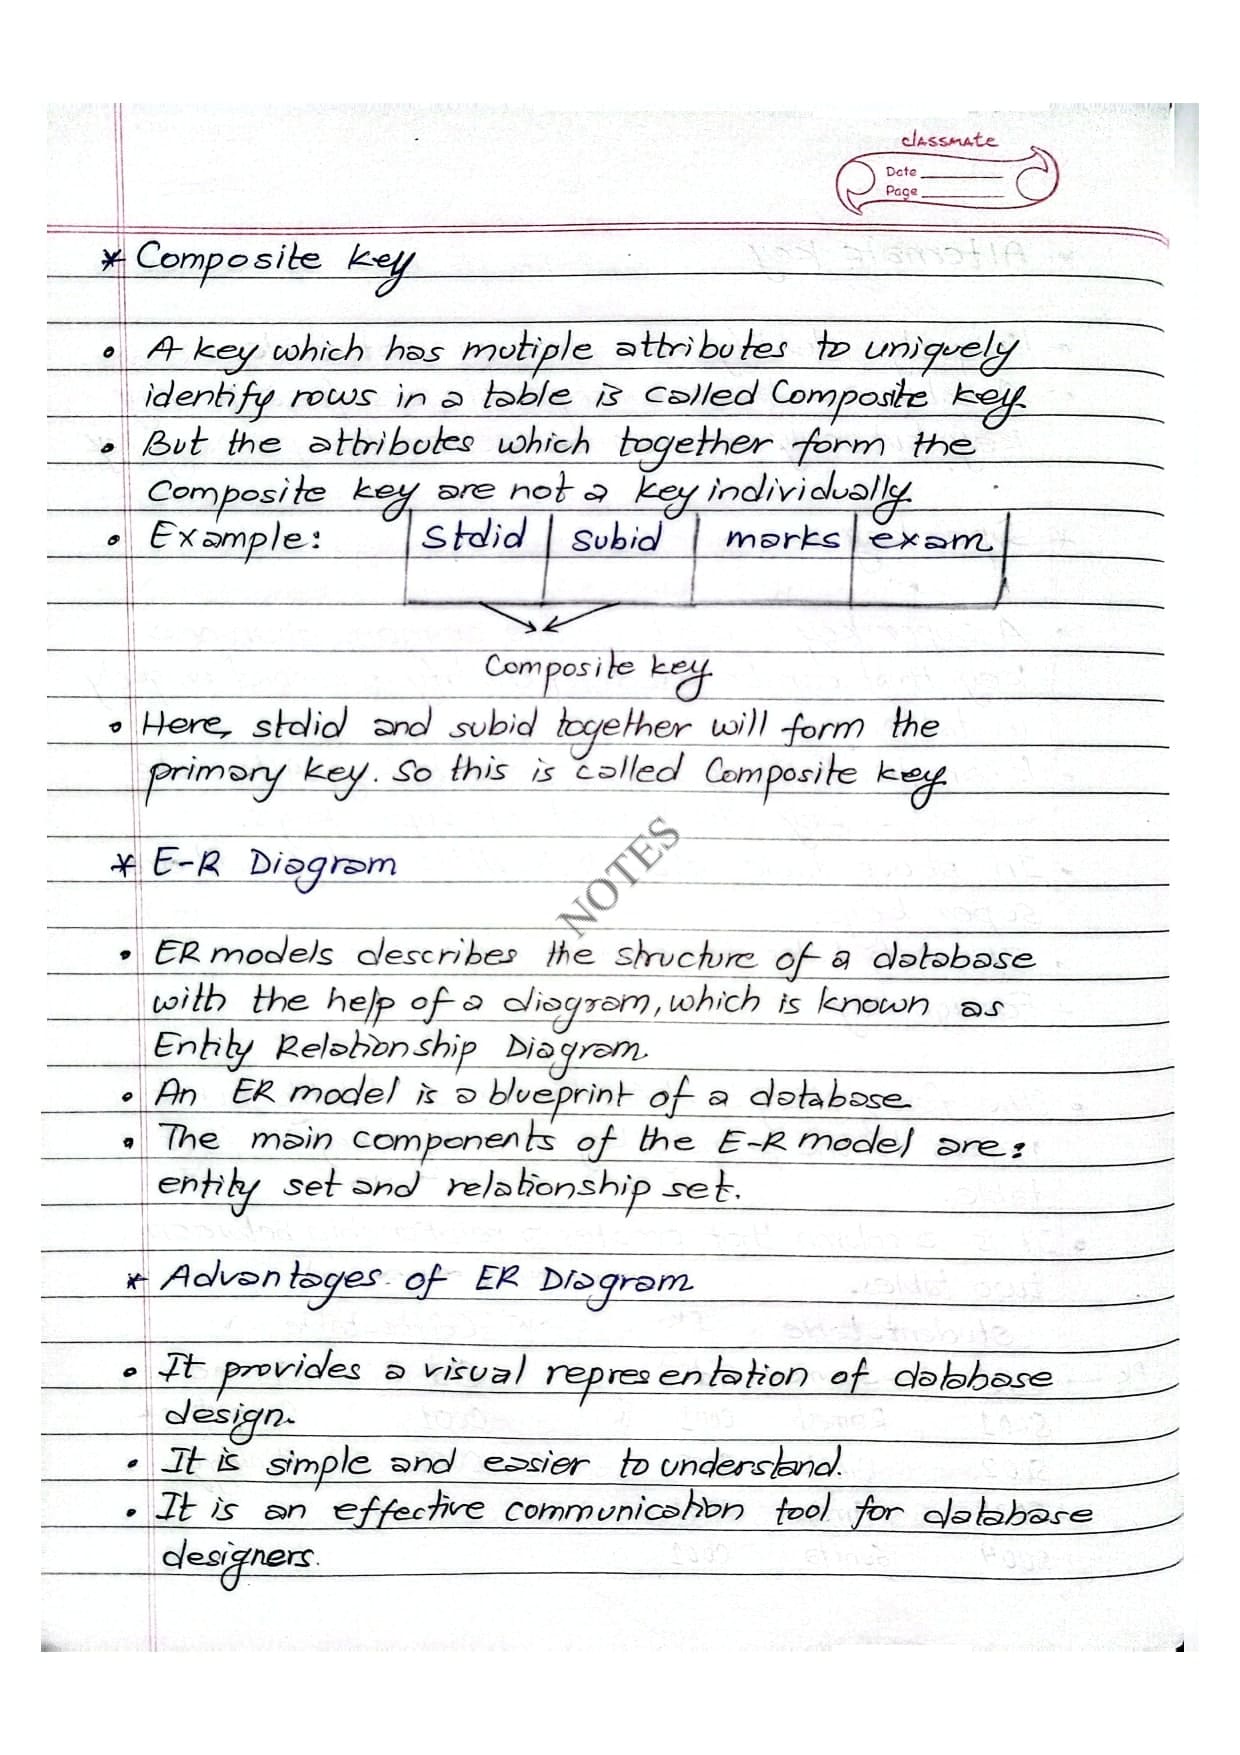 classmate
Date
Page
* Composite key
• A key which has mutiple attributes to uniquely
identify rows in a table is called Composite key.
• But the attributes which together form the
Composite key are not a key individually.
• Example: stdid subid marks exam
Composite key
• Here, stdid and subid together will form the
primary key. So this is called Composite key
NOTES
* E-R Diagram
• ER models describes the structure of a database
with the help of a diagram, which is known as
Entity Relationship Diagram.
• An ER model is a blueprint of a database
• The main components of the E-R model are:
entity set and relationship set.
* Advantages of ER Diagram
• It provides a visual representation of database
design.
• It is simple and easier to understand.
• It is an effective communication tool for database
designers.